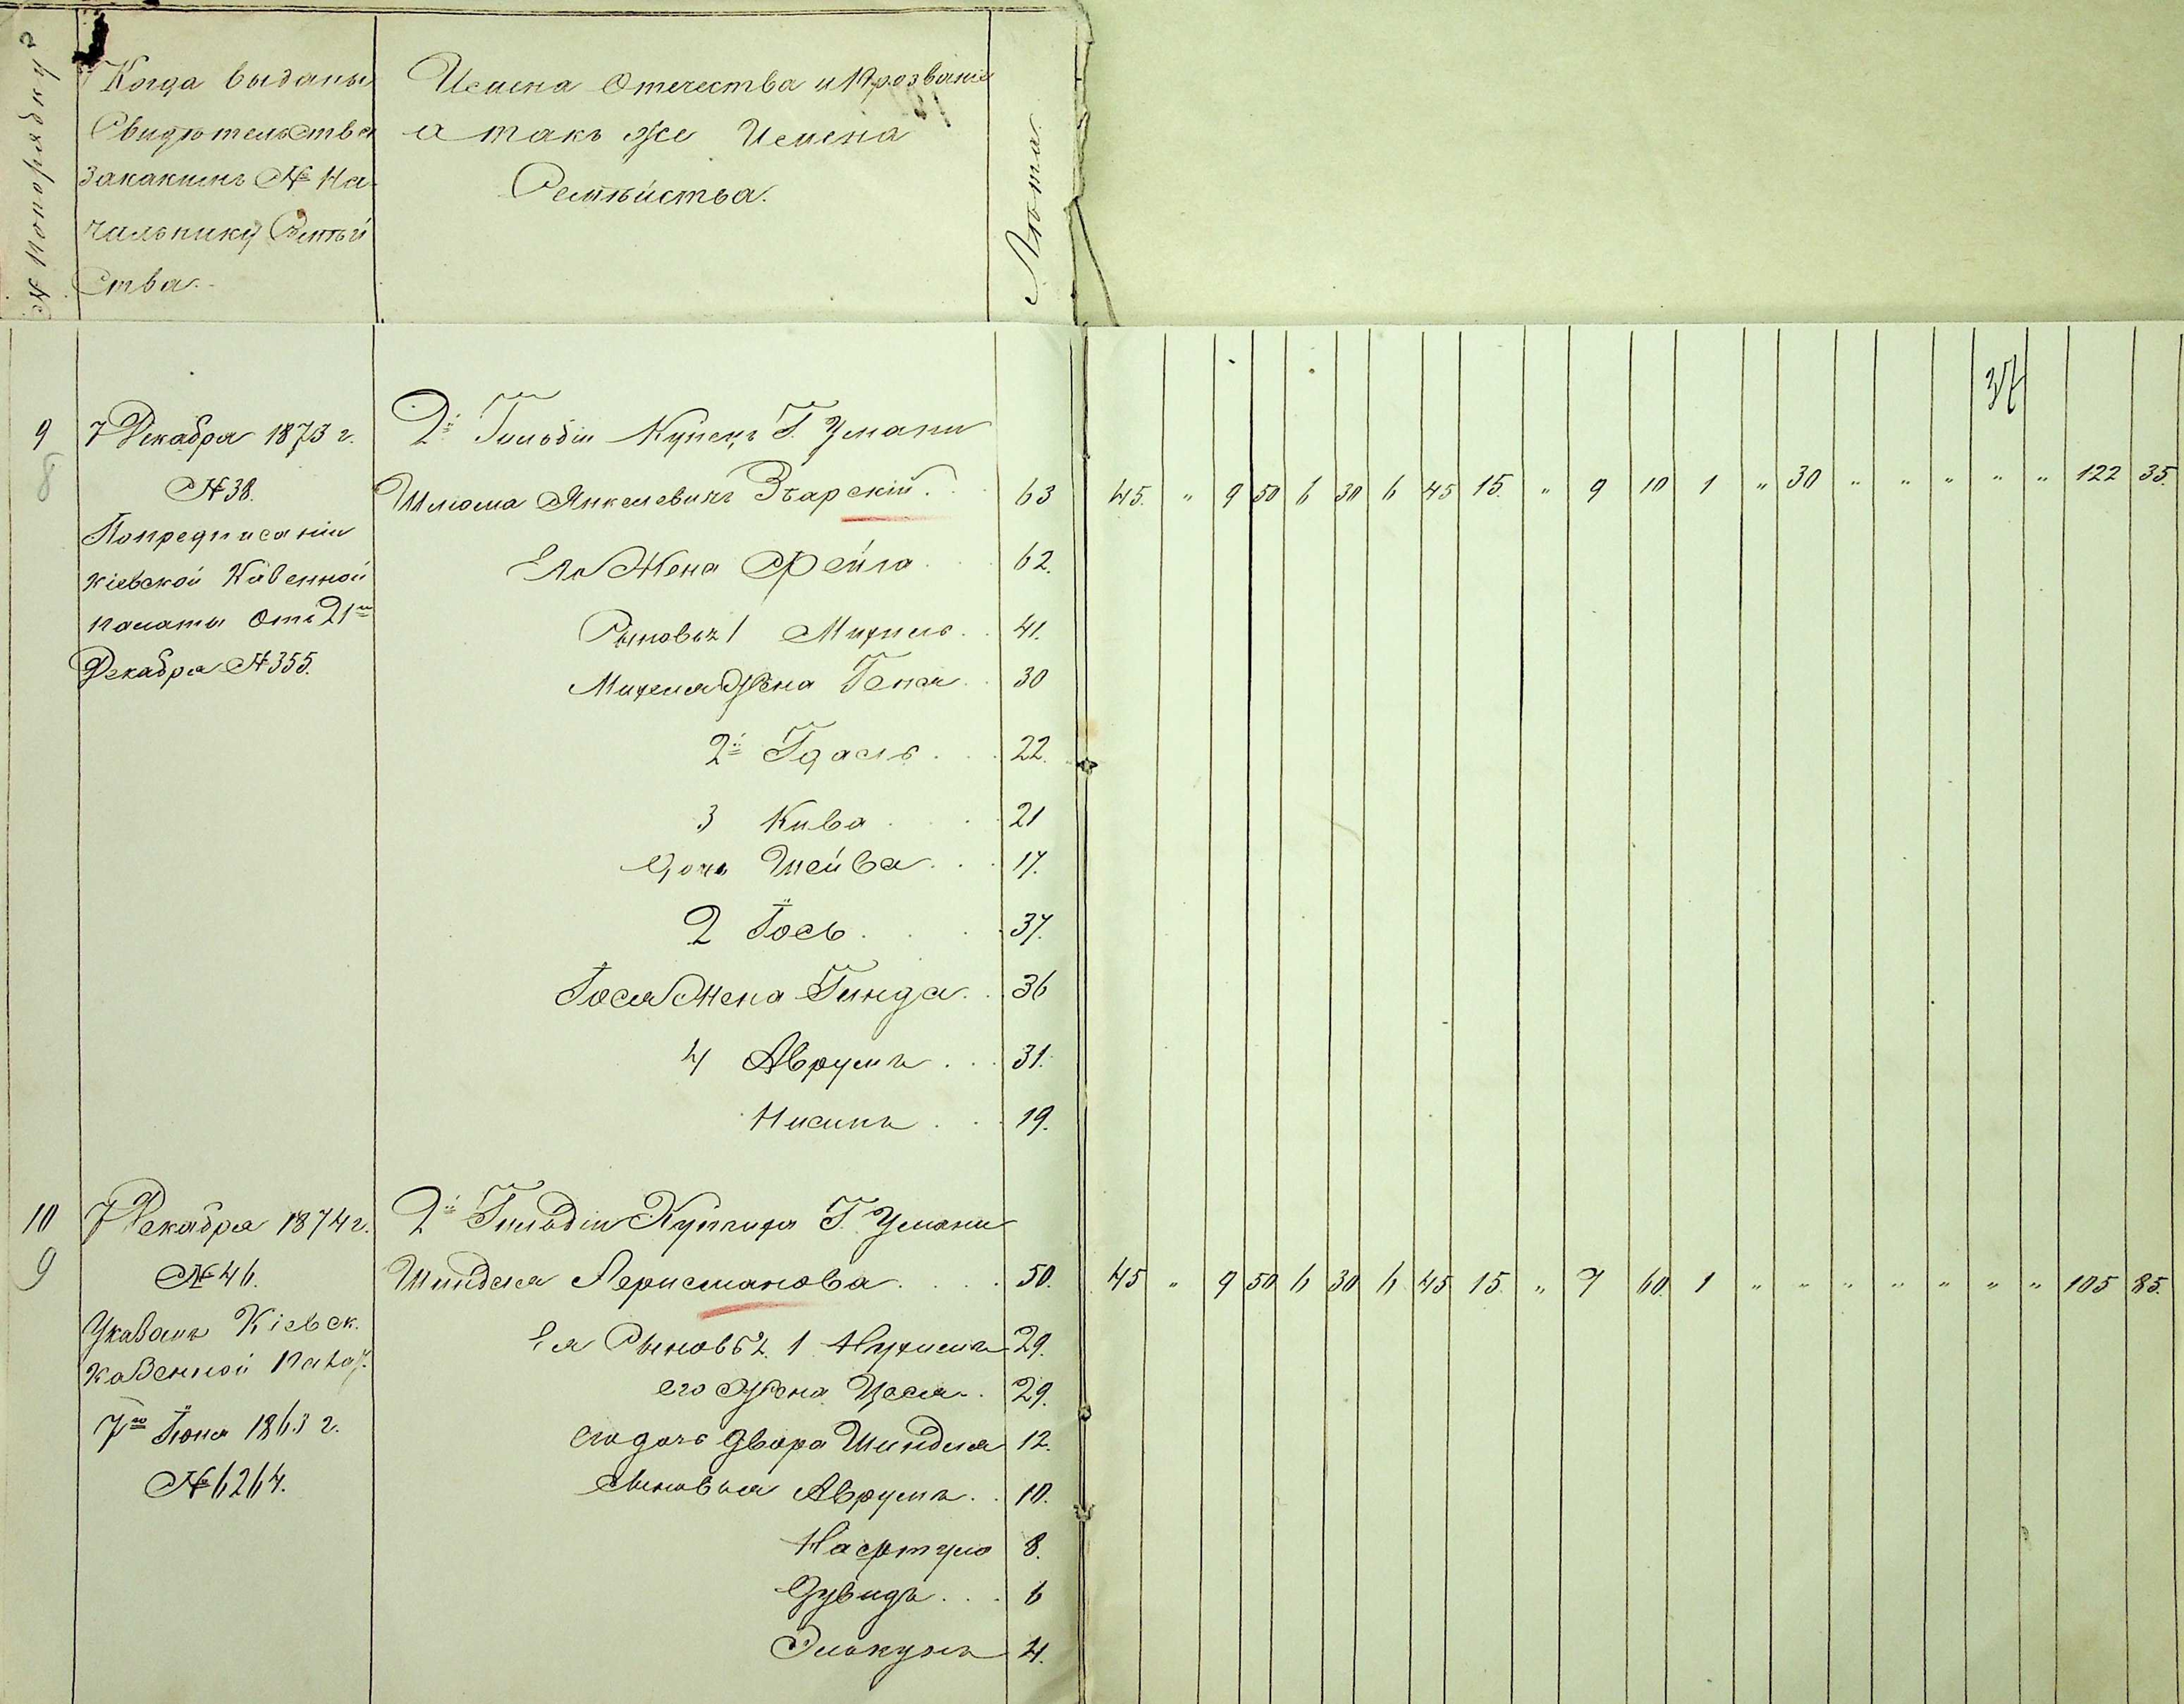 № попорядку
Когда выданы
Свидѣтельства
закакимъ № На-
чальнику Семѣй
ства.
Имена Отечества и Прозванія
а такъ же Имена
Семѣйства.
Лѣта.
37
9
8
7 Декабря 1873 г.
№ 38.
Попредписанію
Кіевской Казенной
палаты Отъ 21го
Декабря № 355.
2й Гильдіи Купецъ Г. Умани
Шлиома Янкелевичъ Збарскій. 63 45. " 9 50 6 30 6 45 15. " 9 10 1 " 30 " " " " " 122 35.
Его Жена Фейга 62.
Сыновья 1 Михель 41.
Михеля Жена Геня 30
2й Гдаль 22.
3 Кива 21
дочь Шейва 17.
2 Іось 37.
Іося Жена Гинда 36
4 Аврумъ 31.
Нисинъ 19.
10
9
7 Декабря 1874 г.
№ 46.
Указомъ Кіевск.
казенной Палат.
7го Іюня 1863 г.
№ 6264.
2й Гильдіи Купчиха Г. Умани
Шиндля Лерисманова 50. 45 " 9 50 6 30 6 45 15. " 7 60. 1 " " " " " " " 105 85.
Ея Сыновья 1 Нухимъ 29.
его Жена Цося 29.
его дочь Двора Шиндля 12.
Сыновья Аврумъ 10.
Нафтуло 8.
Дувидъ 6
Элькунъ 4.